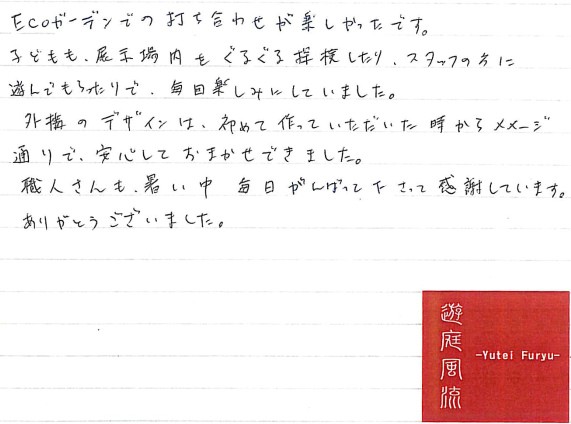 Ecoガーデンでの打ち合わせが楽しかったです。
子どもも、展示場内をぐるぐる探検したり、スタッフの方に
遊んでもらったりで、毎日楽しみにしていました。
外構のデザインは、初めて作っていただいた時からイメージ
通りで、安心しておまかせできました。
職人さんも、暑い中 毎日がんばって下さって感謝しています。
ありがとうございました。
遊庭風流
-Yutei Furyu-